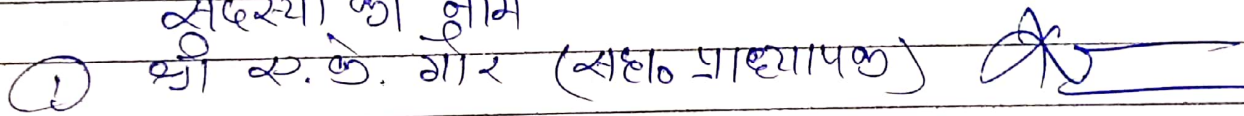 सदस्यो का नाम
① श्री एस.के. गौर (सहा० प्राध्यापक)